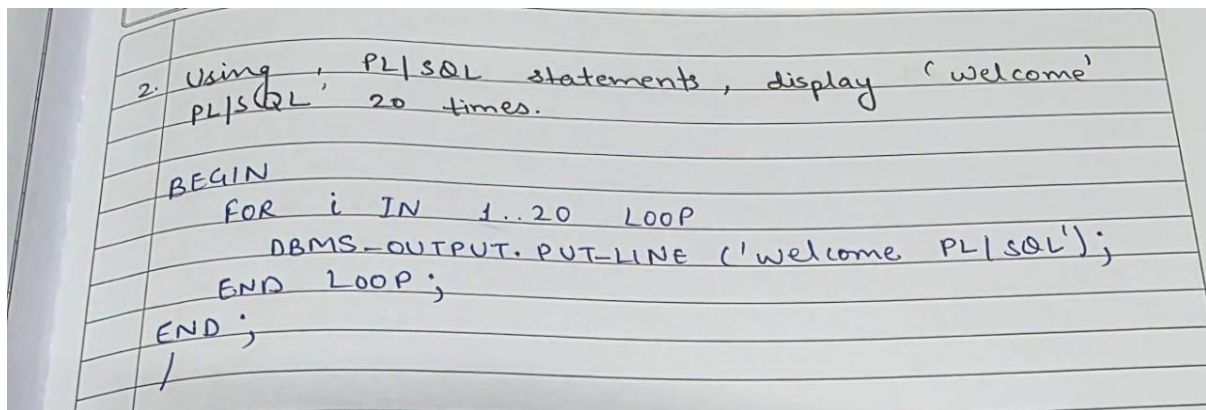 2. Using, PL/SQL statements, display 'Welcome'
PL/SQL' 20 times.
BEGIN
FOR i IN 1..20 LOOP
DBMS_OUTPUT.PUT_LINE ('Welcome PL/SQL');
END LOOP;
END;
/